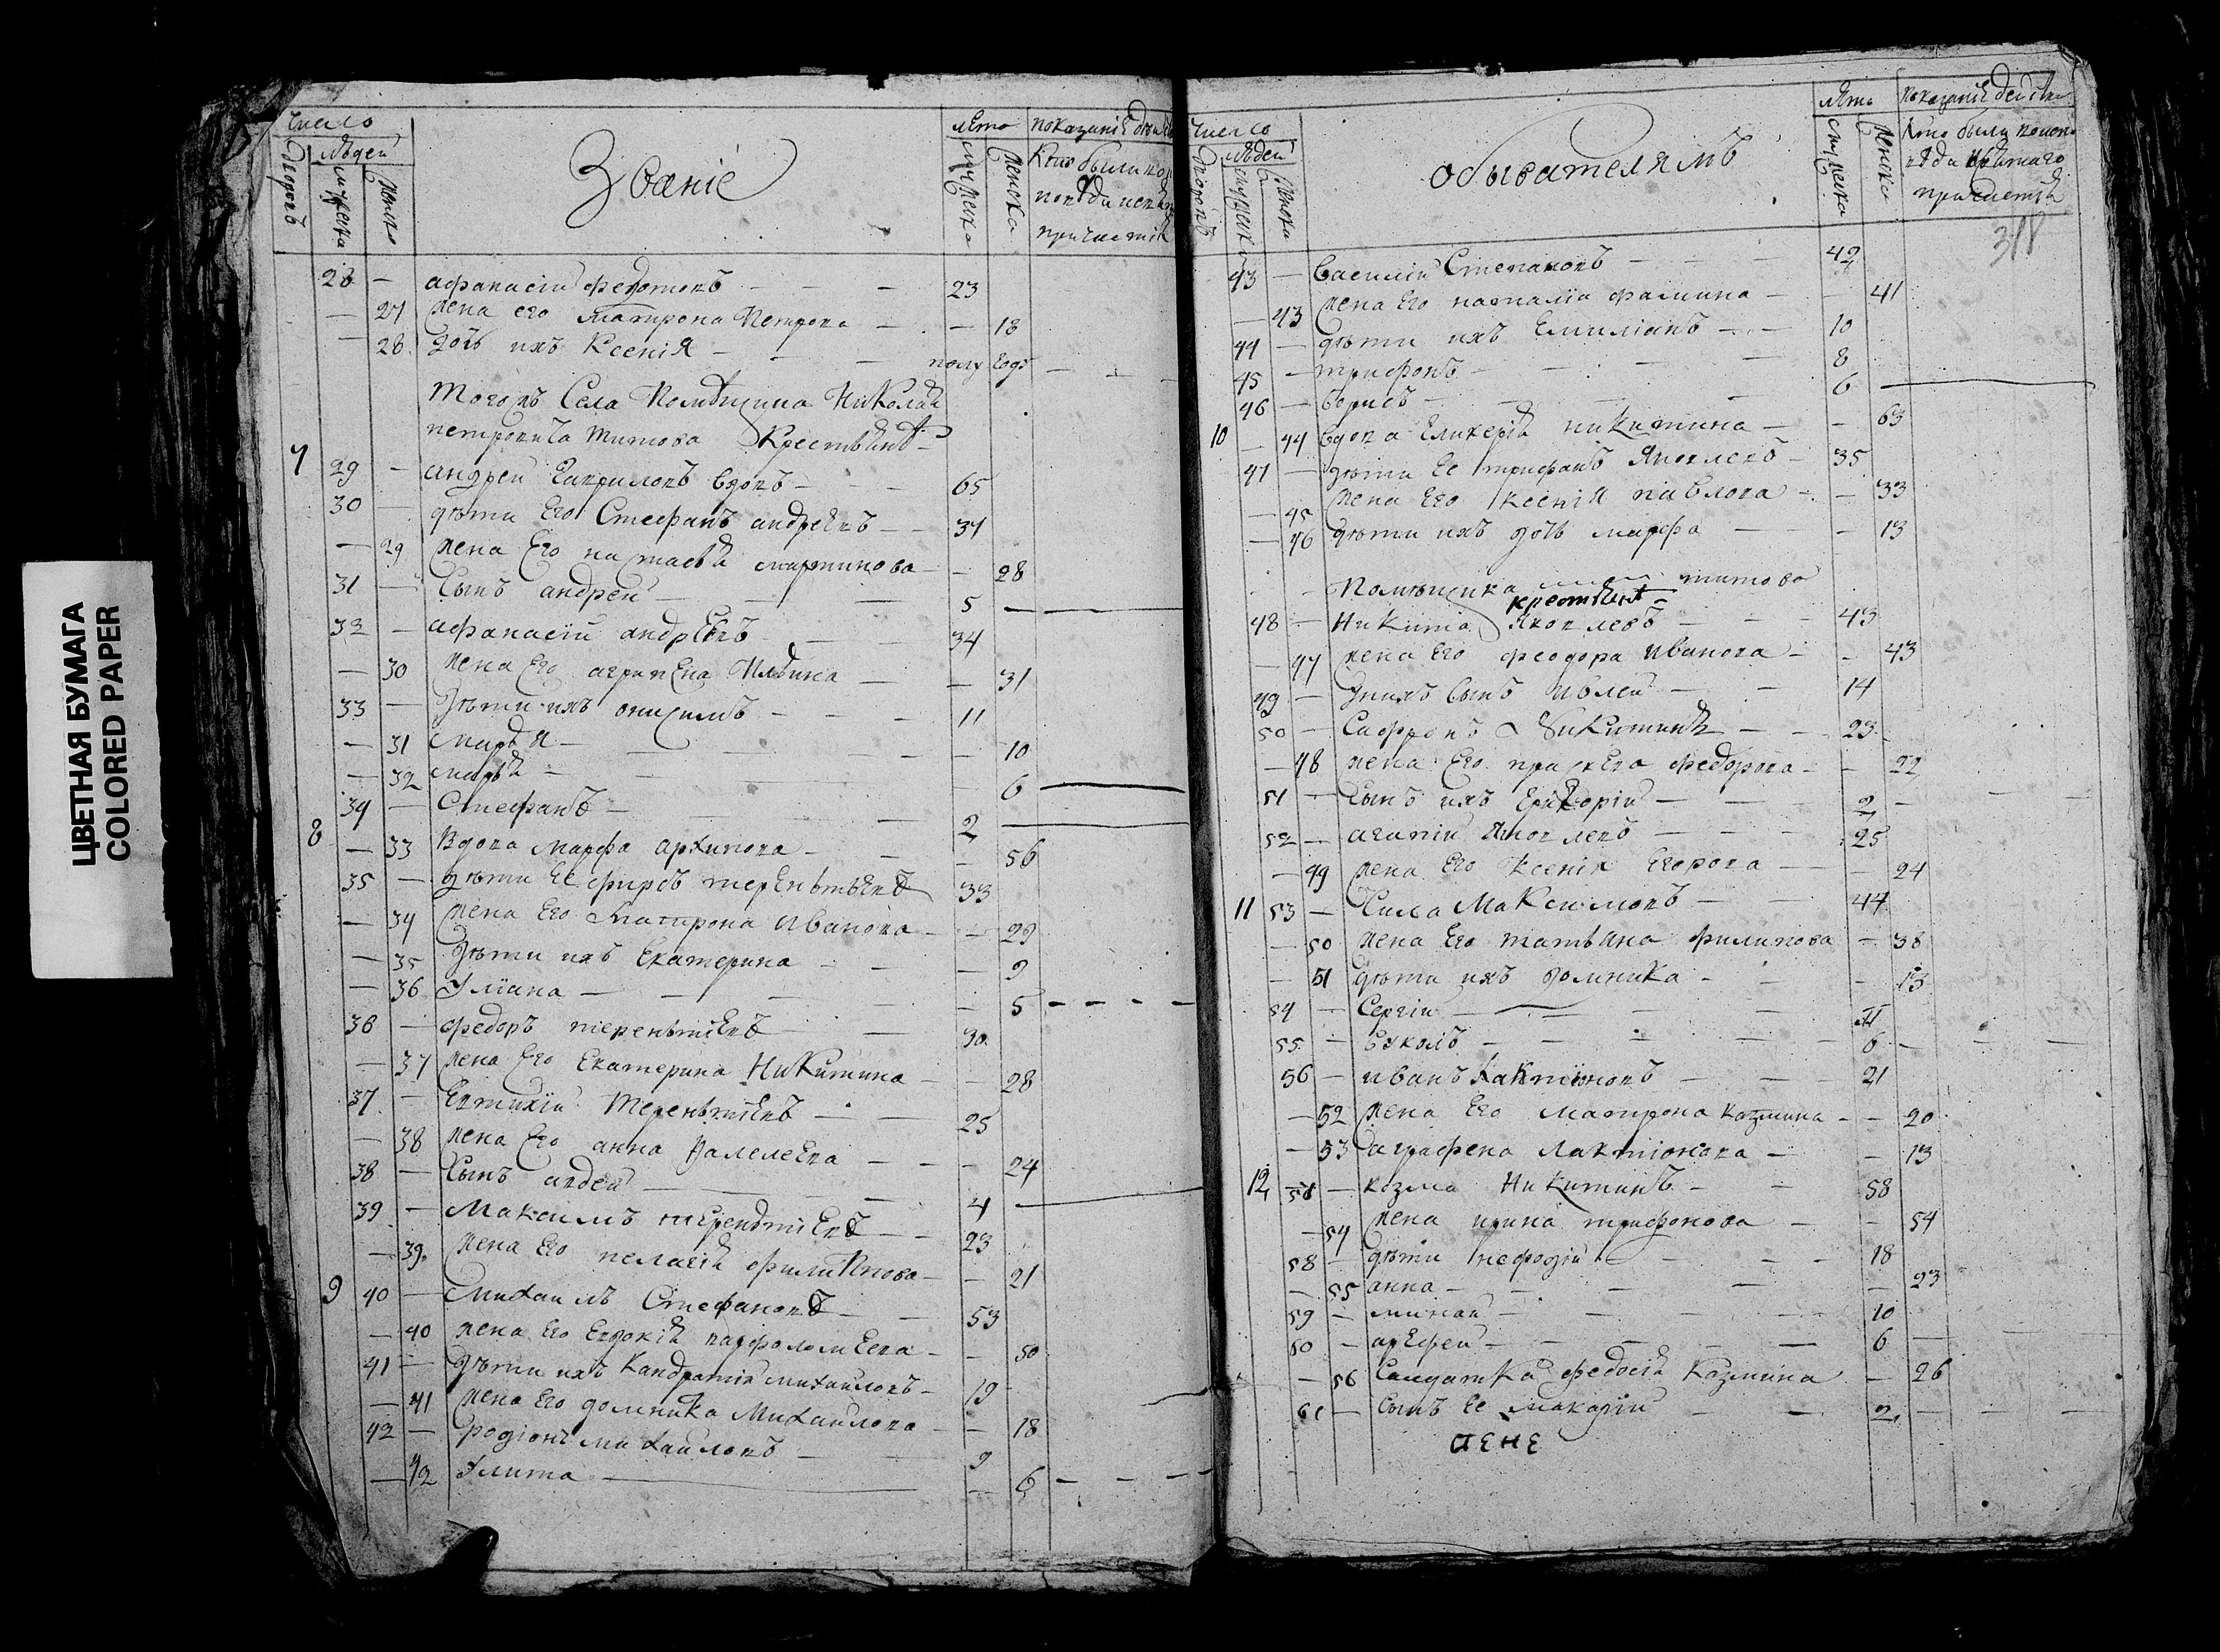 ЦВЕТНАЯ БУМАГА
COLORED PAPER
число
людей
дворовъ
мужеска
женско
Званіе
лета
мужеска
женска
показаніе
Кто были
28 — афанасии федотовъ — — — 23
— 27 жена его матрона Петрова — — 18
— 28 дочь ихъ Ксения — — — полу года — — —
Тогожъ Села Помѣщика Николая
петровича титова Крестьянѣ
7 29 — андреи Гавриловъ вдовъ — — 65
30 — дѣти Его Стефанъ андреевъ — — 37
— 29 жена Его настасья мартинова — — 28
31 — Сынъ андреи — — — 5 —
32 — афанасіи андрѣевъ — — 34
— 30 жена Его агрипена Ильина — — 31
33 — Дѣти ихъ онисимъ — — — 11
— 31 марья — — — — 10
— 32 марья — — — — 6 —
34 — Стефанъ — — — 2 —
8 — 33 Вдова марфа архипова — — — 56
35 — дѣти Ее фирсъ терентьевъ 33
— 34 жена Его Матрона Иванова — — 29
— 35 Дѣти ихъ Екатерина — — — 9
— 36 Улиана — — — — — 5 — — — —
36 — федоръ терентиевъ — — 30
— 37 жена Его Екатерина Никитина — — 28
37 — Евтихіи Терентиевъ — — — 25
— 38 жена Его анна Памелеева — — — 24
38 — Сынъ авдеи — — — 4 —
39 — Максимъ терентиевъ — — 23
— 39 жена Его пелагия филипова — — 21
9 40 — Михаилъ Стефановъ — — 53
— 40 жена Его Евдокия варфоломеева — — 50
41 — дѣти ихъ Кандратии михаиловъ — 19
— 41 жена Его домника Михаилова — — 18
42 — родіонъ михаиловъ — — 9
— 42 Улита — — 6 — — — —
число
людей
дворовъ
мужеска
женска
обывателямъ
лета
мужеска
женска
показание
Кто были
318
43 — Василии Степановъ — — — 42
— 43 жена Его наталия фамина — — 41
44 — дѣти ихъ Емилианъ — — 10
45 — трифонъ — — — 8
46 — борисъ — — — 6 —
10 — 44 вдова Гликерия никитина — — 63
47 — дѣти Ее трифанъ Яковлевъ — 35
— 45 жена Его ксения павлова — — 33
— 46 дѣти ихъ дочь марфа — — 13
Помѣщика титова
крестьянѣ
48 — Никита Яковлевъ — — — 43
— 47 жена Его феодора Иванова — — 43
49 — Унихъ Сынъ — — 14
50 — Сафронъ Никитинъ — — 23
— 48 жена Его праскева федорова — — 22
51 — Сынъ ихъ Григории — — — 2 —
52 — агапіи Яковлевъ — — — 25
— 49 жена Его Ксения Егорова — — 24
11 53 — Сила Максимовъ — — 44
— 50 жена Его татьяна филипова — 38
— 51 дѣти ихъ домника — — — 13
54 — Сергии — — — 11
55 — вуколъ — — — — — 6 — — —
56 — иванъ Лактионовъ — — 21
— 52 жена Его матрона козмина — — 20
— 53 аграфена Лактионова — — 13
12 — козма Никитинъ — — 58
— 54 жена ирина трифонова — — 54
58 — дѣти нефодіи — — — 18
— 55 анна — — — — 23
59 — минаи — — — — 10
60 — арефеи — — — — 6 — —
— 56 Салдатка федосия Казмина — 26
61 — Сынъ Ее макарии — — 2 — — —